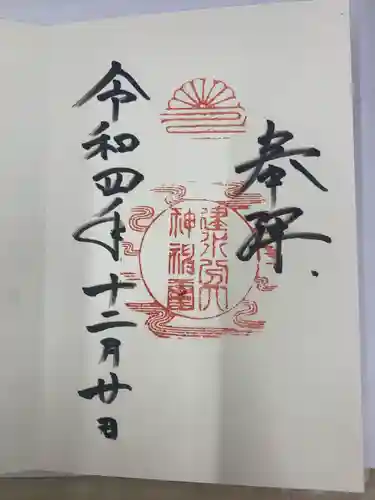 奉拝
建水分
神社璽
令和四年十二月廿日